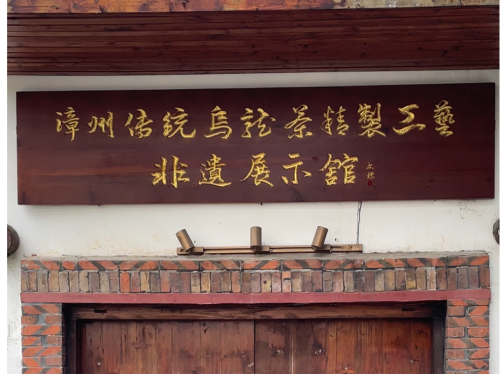 漳州傳統烏龙茶精製工藝
非遺展示館